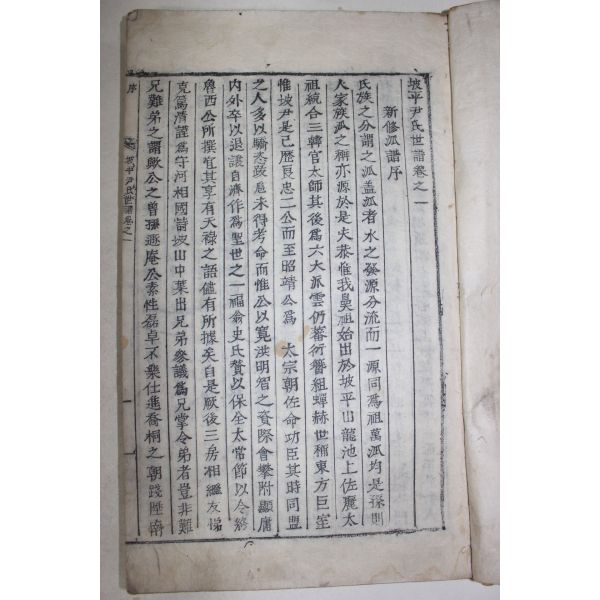 坡平尹氏世譜卷之一
新修派譜序
氏族之分謂之派盖派者水之發源分流而一源同爲祖萬派均是孫則
人家族派之稱亦源於是夫恭惟我鼻祖始出於坡平山龍池上佐麗太
祖統合三韓官太師其後爲六大派雲仍蕃衍簪組蟬赫世稱東方巨室
惟坡尹是已歷良忠二公而至昭靖公爲 太宗朝佐命功臣其時同盟
之人多以驕恣敗 未得考命而惟公以寬洪明智之資際會攀附顯庸
內外卒以退讓自濟作爲聖世之一福 史氏贊以保全太常節以令終
魯西公所撰官其享有天祿之語儘有所據矣自是厥後三房相繼友悌
克篤淸謹爲守河相國諱坡山中葉出兄弟參議爲兄掌令弟者豈非難
兄難弟之謂歟公之曾孫遯庵公素性磊卓不樂仕進喬桐之 朝踐陞南
序
坡平尹氏世譜卷之一
一